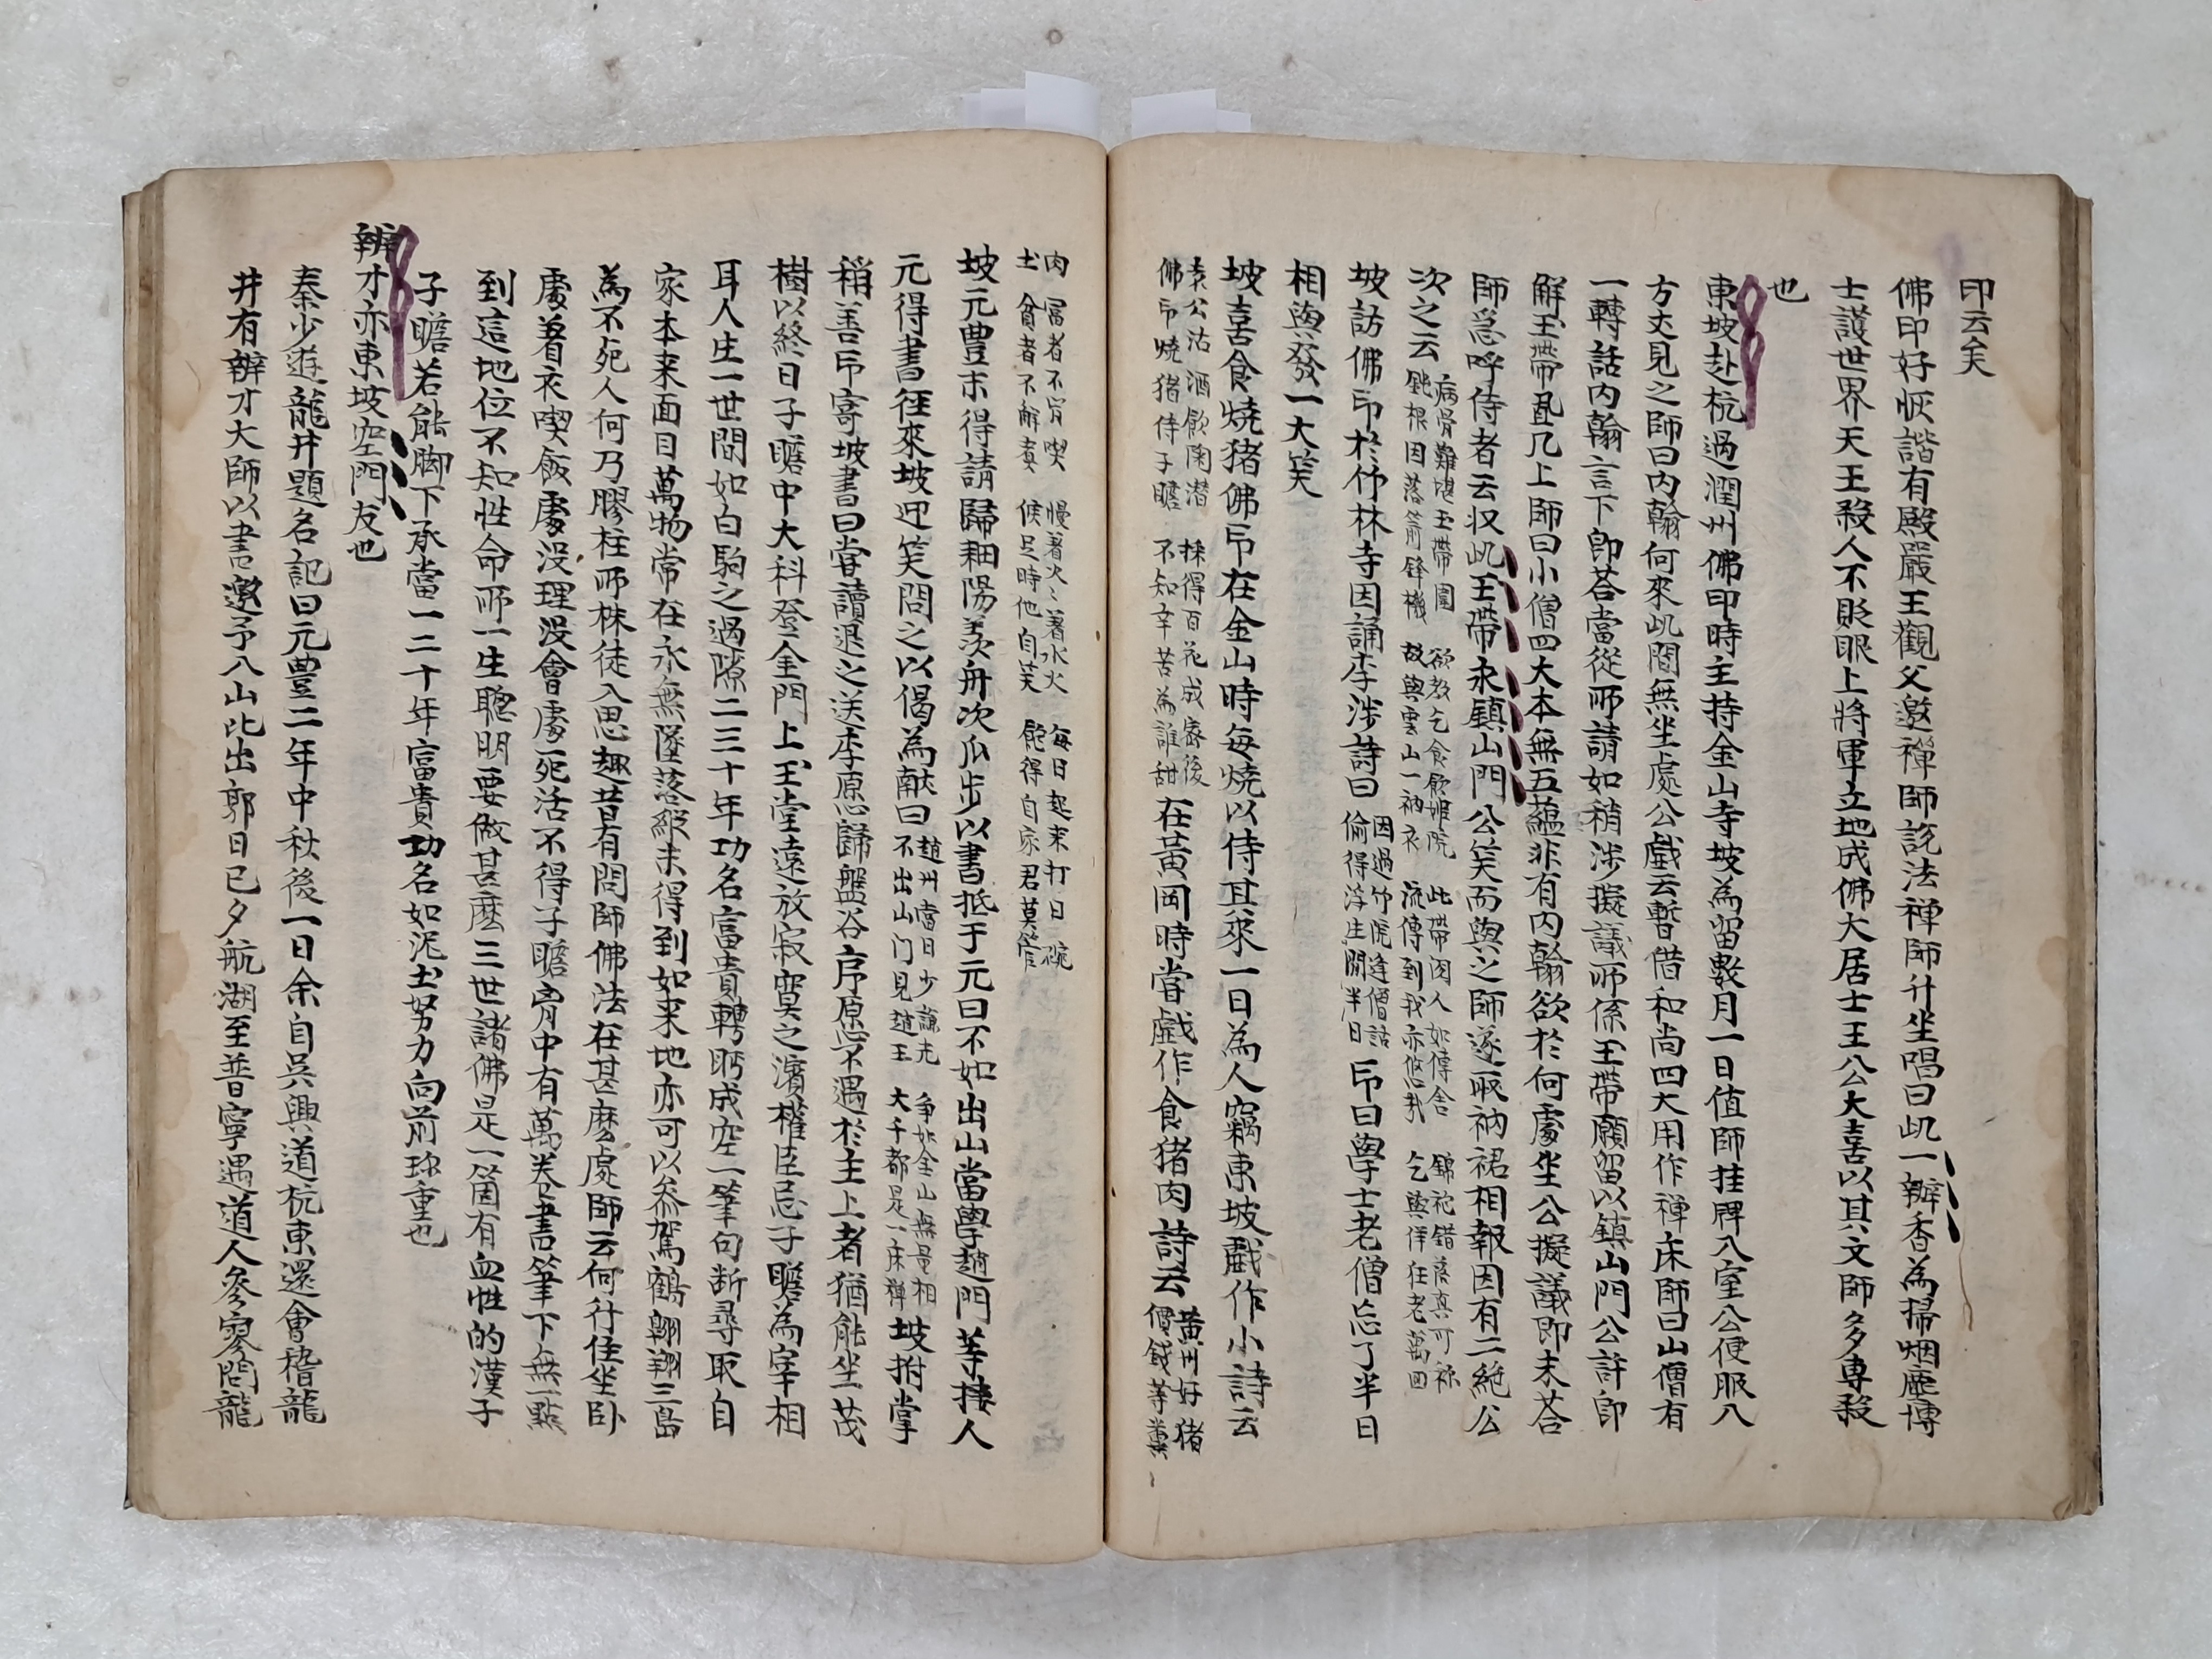 印云矣
佛印好恢諧有殿嚴王觀父邀禪師説法禅師升坐唱曰此一瓣香為掃烟塵博
士護世界天王殺人不眨眼上將軍立地成佛大居士王公大喜以其久文師多專殺
也
東坡赴杭過潤州佛印時主持金山寺坡為留數月一日值師挂牌入室公便服入
方丈見之師曰内翰何來此間無坐處公戲云暫借和尚四大用作禅床師曰山僧有
一轉話内翰言下即荅當從所請如稍涉擬議所係玉帶願留以鎮山門公許即
解玉帶置几上師曰小僧四大本無五蘊非有内翰欲於何處坐公擬議即未荅
師急呼侍者云收此玉帶永鎮山門公笑而與之師遂取衲裙相報因有二絶公
次之云 病骨難堪玉帶圍 鈍根因落箭鋒機 欲教乞食歌姬院 故與雲山一衲衣 此帶閲人如傳舍 流傳到我亦悠哉 錦袍錯落真可稱 乞與佯狂老萬回
坡訪佛印於竹林寺因誦李涉詩曰 因過竹院逢僧話 偷得浮生閒半日 印曰學士老僧忘了半日
相與發一大笑
坡喜食燒猪佛印在金山時每燒以侍其來一日為人竊東坡戲作小詩云
遠公沽酒飲陶潜 佛印燒猪待子瞻 採得百花成蜜後 不知辛苦為誰甜 在黃岡時當戲作食猪肉詩云 黃州好猪 價錢等糞
肉 富者不肯喫 土 貧者不解煮 慢著火ミ著水火 候足時他自笑 每日起來打一碗 飽得自家君莫管
坡元豊末得請歸耕陽羨舟次瓜步以書抵于元曰不如出山當學趙門等接人
元得書徑來坡迎笑問之以偈為献曰 趙州當日少謙光 不出山门見趙王 争如金山無量相 大千都是一床禅 坡拊掌
稱善印寄坡書曰嘗讀退之送李原愿歸盤谷序愿不遇於主上者猶能坐茂
樹以終日子瞻中大科登金門上玉堂遠放寂寞之濱權臣忌子瞻為宰相
耳人生一世間如白駒之過隙二三十年功名富貴轉眄成空一筆句断尋取自
家本来面目萬物常在永無墜落縱未得到如来地亦可以參駕鶴翺翔三島
為不死人何乃膠柱所株徒入思趣昔有問師佛法在甚麽處師云何行住坐卧
處着衣喫飯處没理没會處死活不得子瞻胷中有萬卷書筆下無一點
到這地位不知性命所一生聰明要做甚麽三世諸佛是一箇有血性的漢子
子瞻若能脚下承當一二十年富貴功名如泥土努力向前珎重也
辨才亦東坡空門友也
秦少遊龍井題名記曰元豊二年中秋後一日余自吳興道杭東還會稽龍
井有辨才大師以書邀予入山比出郭日已夕航湖至普寧遇道人參寥問龍